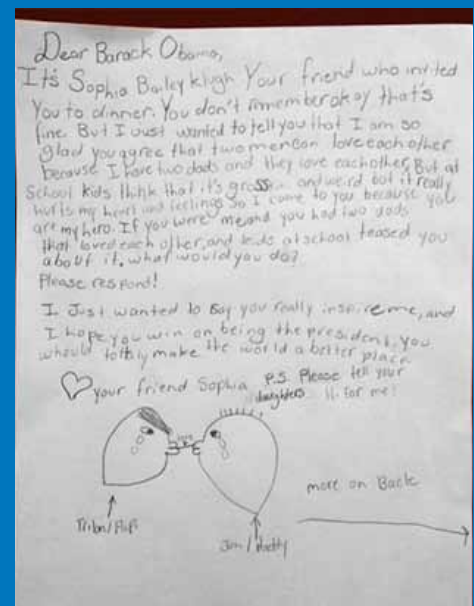 Dear Barack Obama,
It's Sophia Bailey Klugh Your friend who invited
You to dinner. You don't rmember okay that's
fine. But I Just wanted to tell you that I am so
glad you agree that two men can love each other
because I have two dads and they love each other. But at
School kids think that it's gross and weird but it really
hurts my heart and feelings so I come to you because you
are my hero. If you were me and you had two dads
that loved each other, and kids at school teased you
about it, what would you do?
Please respond!
I Just wanted to say you really inspire me, and
I hope you win on being the president. You
whould totally make the world a better place
your friend Sophia P.S. Please tell your
daughters Hi for me!
more on Back